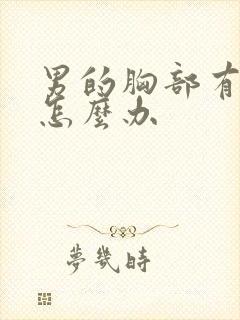 男的胸部有
怎麼办
夢幾時